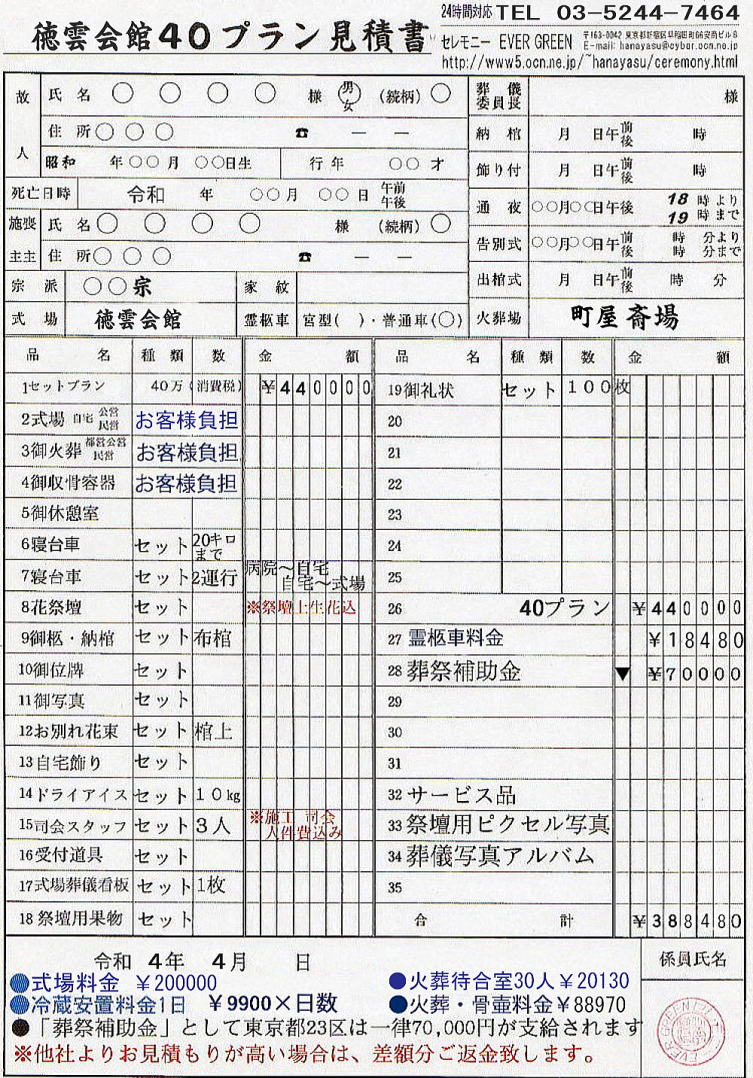 24時間対応 TEL 03-5244-7464
徳雲会館40プラン見積書
セレモニー EVER GREEN
〒163-0042 東京都新宿区早稲田町66安商ビル8
E-mail: hanayasu@cyber.ocn.ne.jp
http://www5.ocn.ne.jp/~hanayasu/ceremony.html
故人 氏名 ○ ○ ○ ○ 様 男 女 (続柄) ○
住所 ○ ○ ○ ☎ ― ―
昭和 年○○月 ○○日生 行年 ○○才
死亡日時 令和 年 ○○月 ○○日 午前 午後
施主 喪主 氏名 ○ ○ ○ ○ 様 (続柄) ○
住所 ○ ○ ○ ☎ ― ―
宗派 ○○宗 家紋
式場 徳雲会館 霊柩車 宮型( )・普通車(○)
葬儀委員長 様
納棺 月 日午前後 時
飾り付 月 日午前後 時
通夜 ○○月○○日午後 18時より 19時まで
告別式 ○○月○○日午前後 時 分より 時 分まで
出棺式 月 日午前後 時 分
火葬場 町屋斎場
品名 種類 数 金額
1セットプラン 40万(消費税) ¥440000
2式場 自宅 公営 民営 お客様負担
3御火葬 都営公営 民営 お客様負担
4御収骨容器 お客様負担
5御休憩室
6寝台車 セット 20キロまで
7寝台車 セット 2運行 病院〜自宅 自宅〜式場
8花祭壇 セット ※祭壇上生花込
9御柩・納棺 セット 布棺
10御位牌 セット
11御写真 セット
12お別れ花束 セット 棺上
13自宅飾り セット
14ドライアイス セット 10kg
15司会スタッフ セット 3人 ※施工 司会 人件費込み
16受付道具 セット
17式場葬儀看板 セット 1枚
18祭壇用果物 セット
品名 種類 数 金額
19御礼状 セット 100枚
20
21
22
23
24
25
26 40プラン ¥440000
27 霊柩車料金 ¥18480
28 葬祭補助金 ▼ ¥70000
29
30
31
32 サービス品
33 祭壇用ピクセル写真
34 葬儀写真アルバム
35
合計 ¥388480
令和 4年 4月 日
係員氏名
●式場料金 ¥200000
●火葬待合室30人¥20130
●冷蔵安置料金1日 ¥9900×日数
●火葬・骨壷料金¥88970
●「葬祭補助金」として東京都23区は一律70,000円が支給されます
※他社よりお見積もりが高い場合は、差額分ご返金致します。